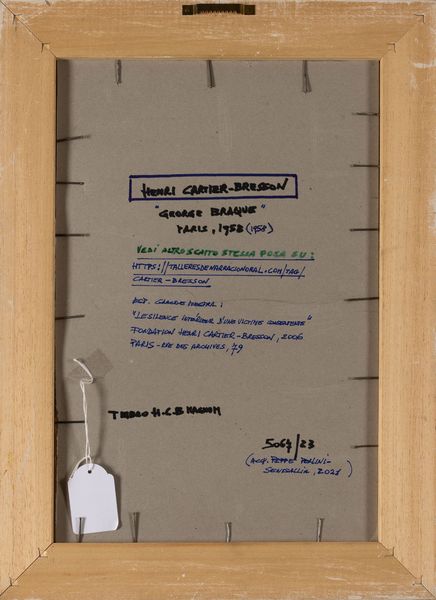 HENRI CARTIER-BRESSON
"GEORGE BRAQUE"
PARIS, 1958 (1958)
VEDI ALTRO SCATTO STESSA POSA SU:
HTTPS://TALLERESDENARRACIONORAL.COM/TAG/
CARTIER-BRESSON
GRANDE MOSTRA:
"LE SILENCE INTÉRIEUR D'UNE VICTIME CONSENTANTE"
FONDATION HENRI CARTIER-BRESSON, 2006
PARIS - RUE DES ARCHIVES, 79
TIMBRO H.C.B MAGNUM
5067/23
(ACQ. PEPPE
SENIGALLIA, 2021)